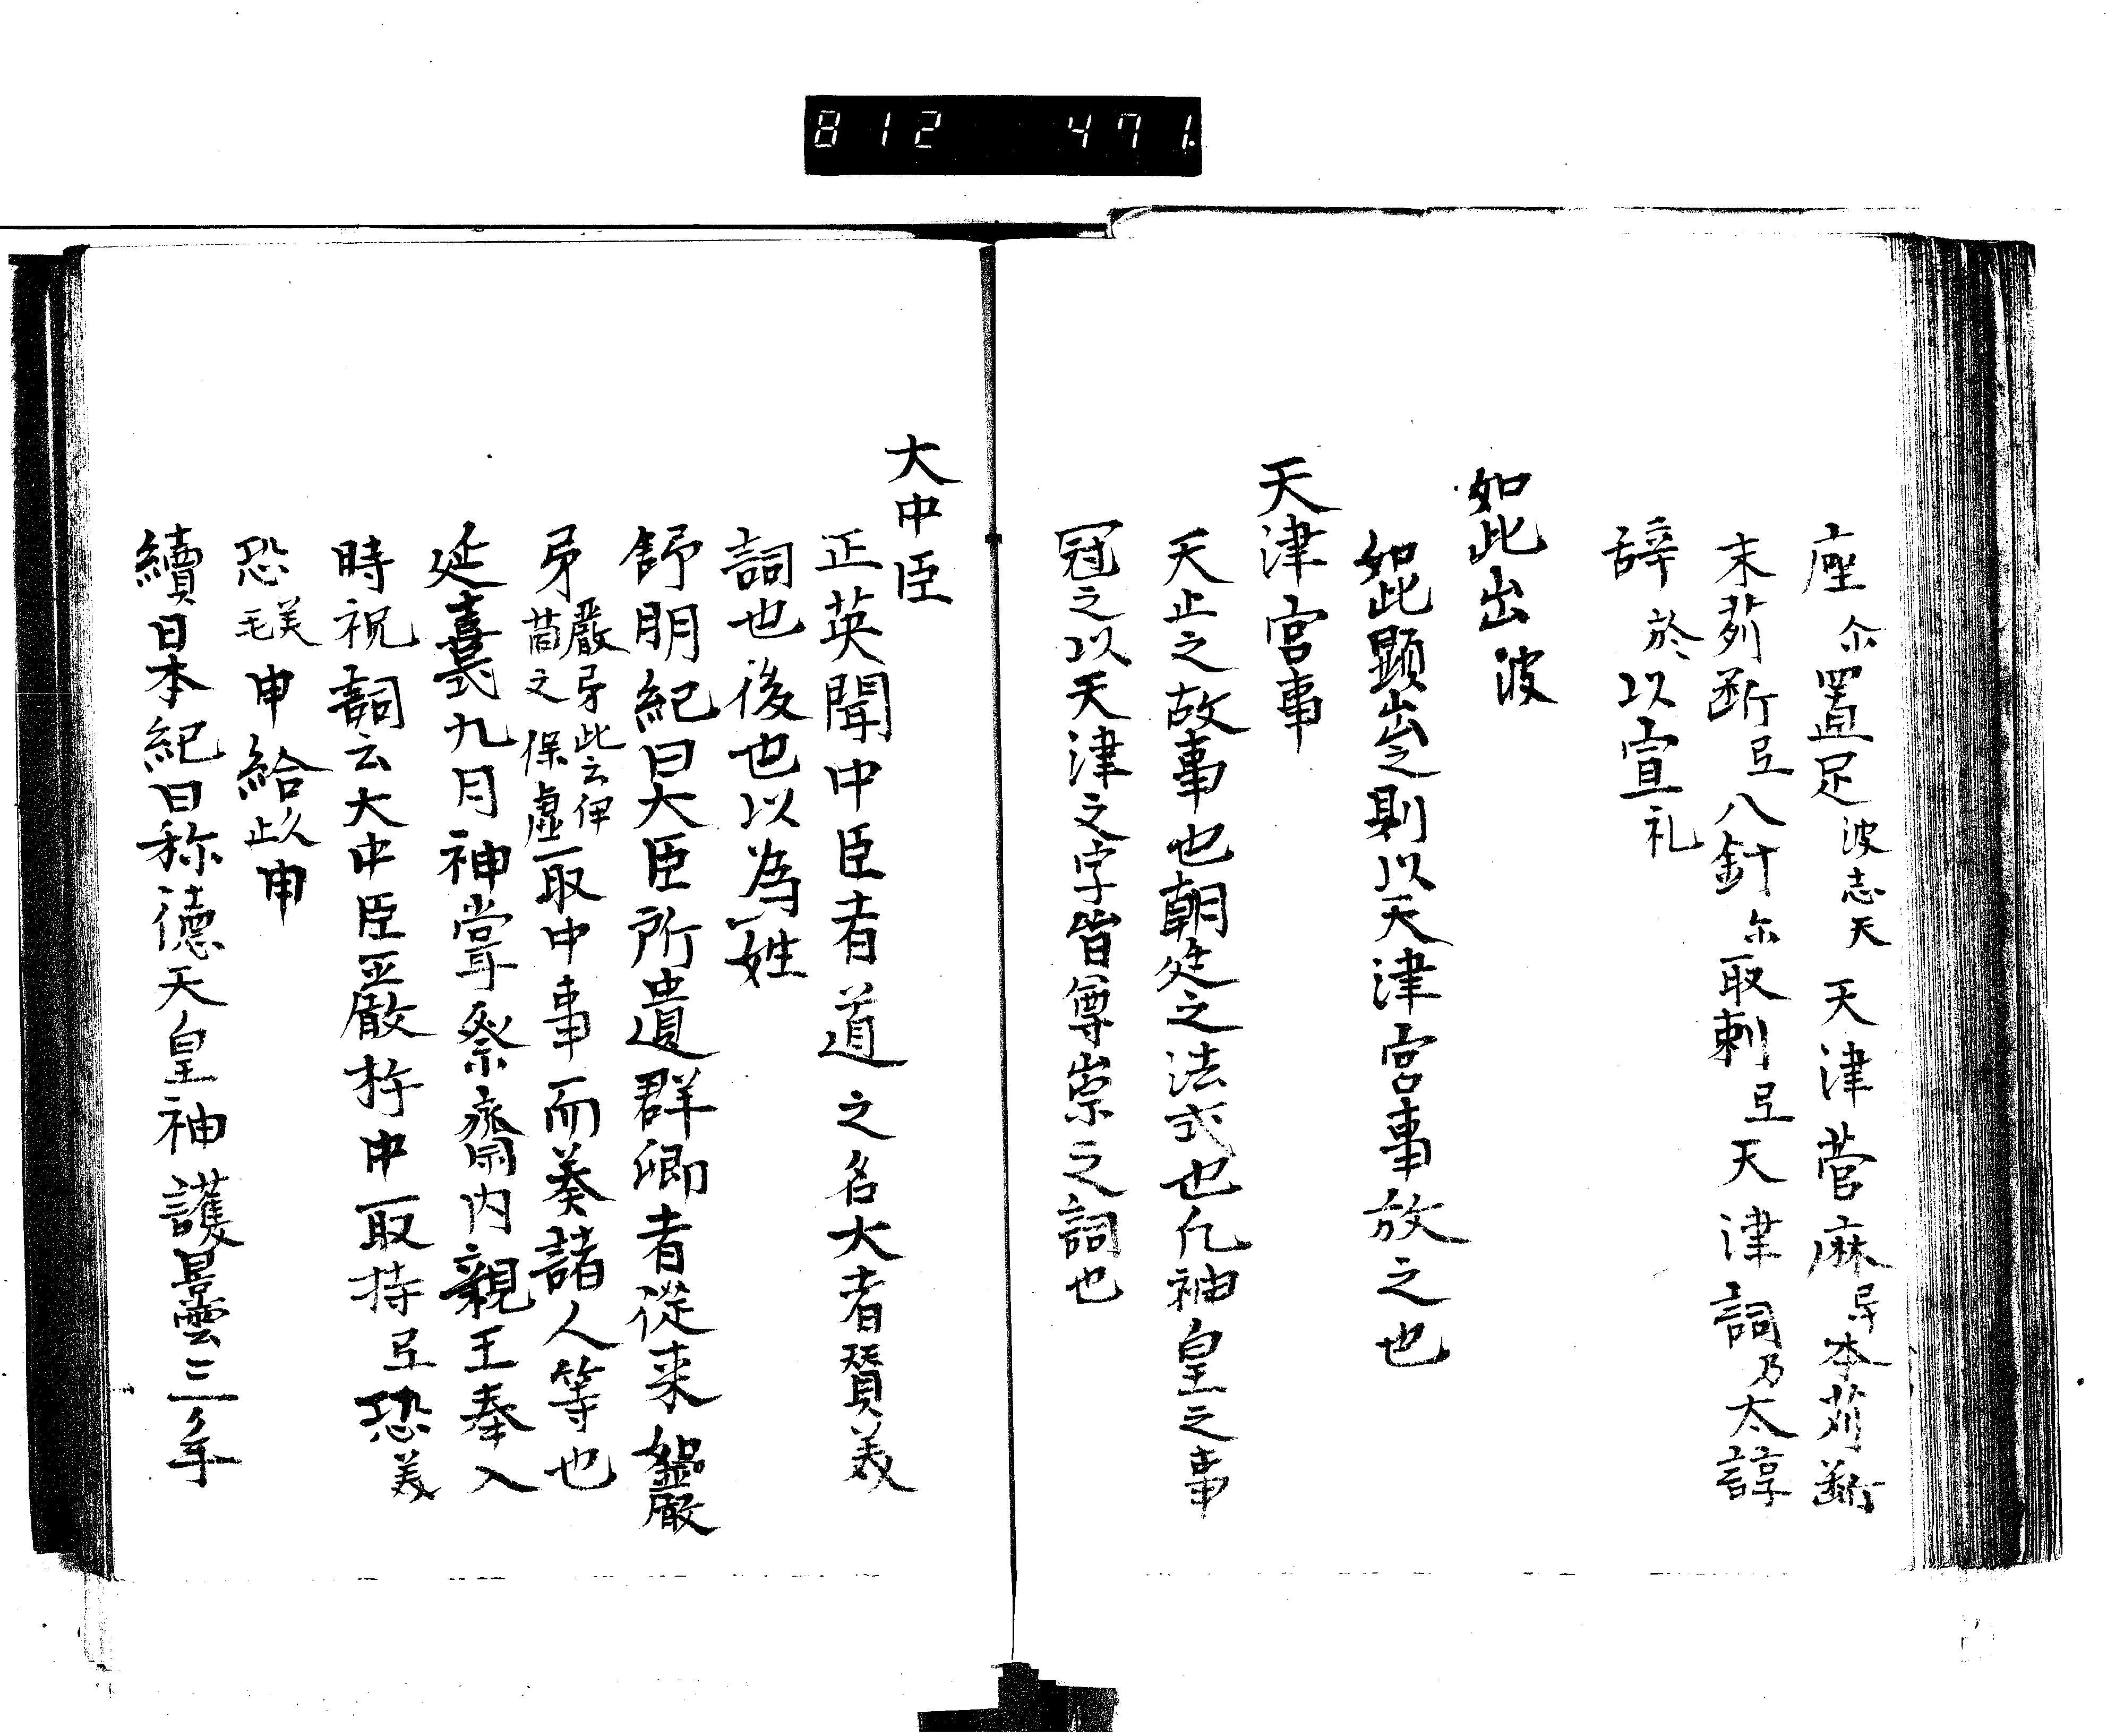 812 471.
座尓置足波志天天津菅麻弖本苅断
末苅断弖八針尓取刺弖天津詞乃太諄
辞於以宣礼
如此出波
如此顕出之則以天津宮事放之也
天津宮事
天止之故事也朝廷之法式也凡神皇之事
冠之以天津之字皆尊崇之詞也
大中臣
正英聞中臣者道之名大者賛美
詞也後也以為姓
舒明紀曰大臣所遣群卿者従来如厳
矛厳矛此云伊箇之保虚取中事而奏諸人等也
延喜式九月神嘗祭斎内親王奉入
時祝詞云大中臣茲厳桙中取持弖恐美
恐毛美申給止久申
續日本紀曰称徳天皇神護景雲三年